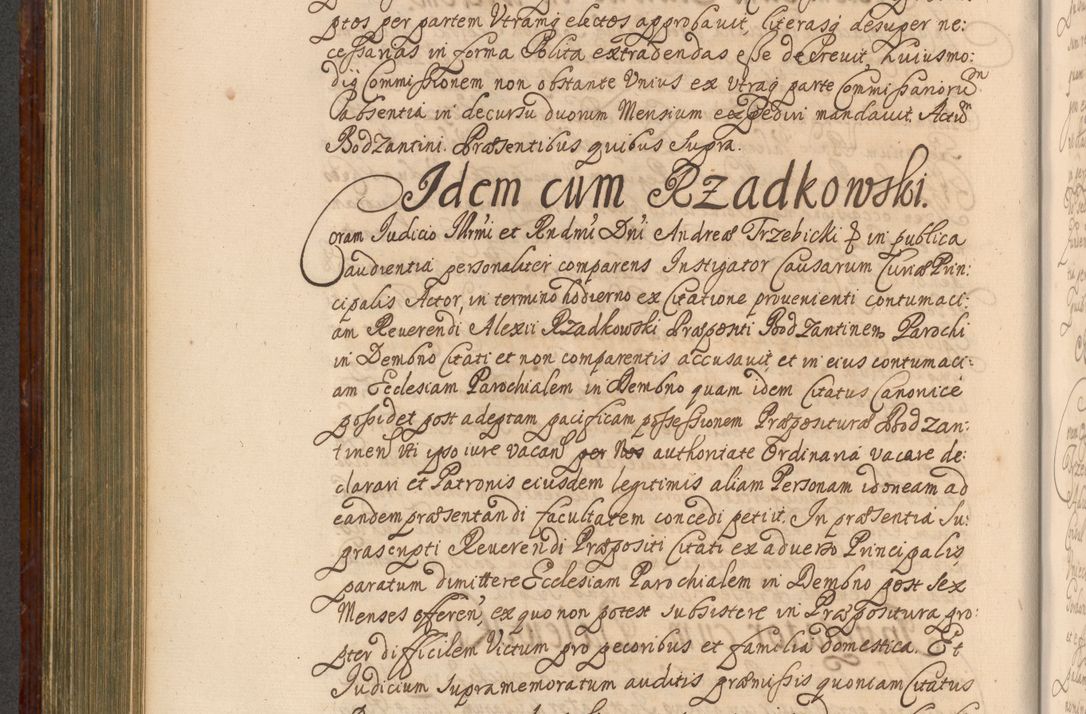 ptos per partem Vtramq electos approbauit, literasq desuper ne:
cessarias in forma Polita extradendas esse decreuit, huiusmo:
dij Commissionem non obstante Vnius ex Vtraq parte Commissarioru
absentia in decursu duorum Mensium expediri mandauit. Actu
Bodzantini. Præsentibus quibus Supra.
Idem cum Rzadkowski.
Coram Iudicio Illrmi et Rndmi Dni Andreæ Trzebicki in publica
audientia personaliter comparens Instigator Causarum Curiæ Prin:
cipalis Actor, in termino hodierno ex Citatione provenienti contumaci:
am Reuerendi Alexii Rzadkowski Præpositi Bodzantinen Parochi
in Dembno Citati et non comparentis accusauit, et in eius contumaci:
am Ecclesiam Parochialem in Dembno quam idem Citatus Canonice
possidet post adeptam pacificam possessionem Præposituræ Bodzan:
tinen Vti ipso iure vacan per Nos authoritate Ordinaria vacare de:
clarari et Patronis eiusdem legitimis aliam Personam idoneam ad
eandem præsentandi facultatem concedi petiit. In præsentia Su:
prascripti Reuerendi Præpositi Citati ex aduerso Principalis,
paratum dimittere Ecclesiam Parochialem in Dembno post Sex
Menses offeren, ex quo non potest subsistere in Præpositura pro:
pter difficilem Victum pro pecoribus et familia domestica. Et
Iudicium Supramemoratum auditis præmissis quoniam Citatus